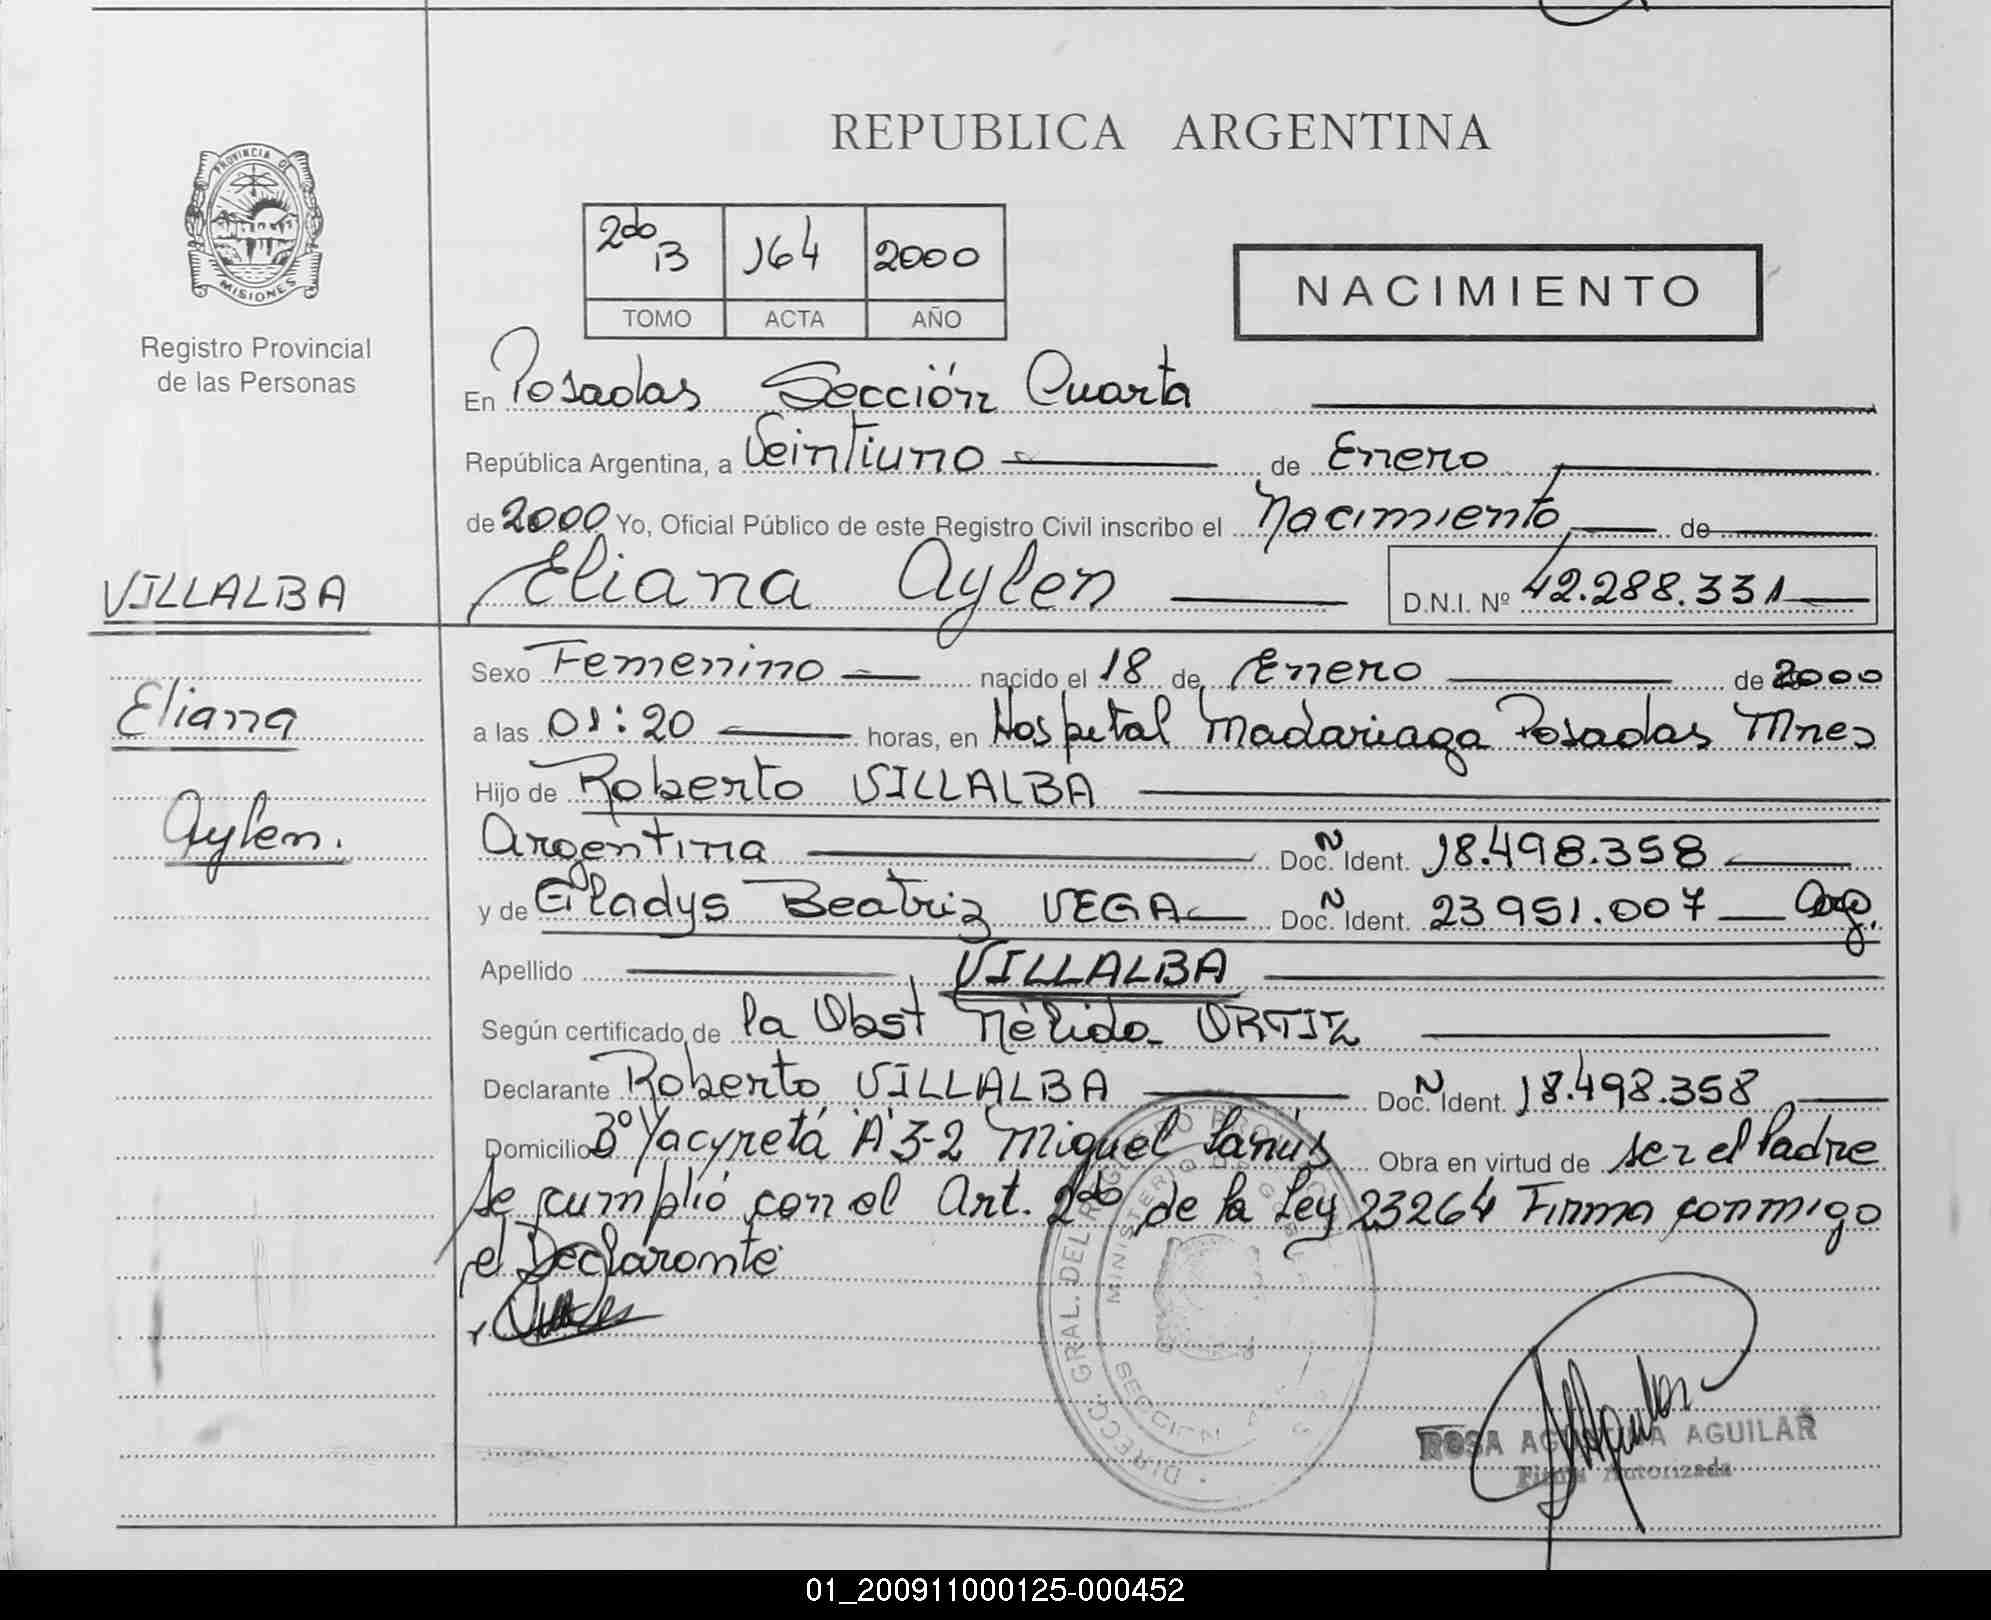 REPUBLICA ARGENTINA
PROVINCIA DE
MISIONES
Registro Provincial
de las Personas
2do B 164 2000
TOMO ACTA AÑO
NACIMIENTO
En Posadas Sección Cuarta
República Argentina, a Veintiuno de Enero
de 2000 Yo, Oficial Público de este Registro Civil inscribo el Nacimiento de
VILLALBA
Eliana Aylen D.N.I. Nº 42.288.331
Sexo Femenino nacido el 18 de Enero de 2000
Eliana
a las 01:20 horas, en Hospital Madariaga Posadas Mnes
Hijo de Roberto VILLALBA
Aylen.
Argentina Doc. N Ident. 18.498.358
y de Gladys Beatriz VEGA Doc. N Ident. 23951.007 Arg.
Apellido VILLALBA
Según certificado de la Obst Nélida ORTIZ
Declarante Roberto VILLALBA Doc. N Ident. 18.498.358
Domicilio Bº Yacyretá A 3-2 Miguel Lanús Obra en virtud de ser el Padre
Se cumplió con el Art. 2do de la Ley 23264 Firma conmigo
el Declarante
DIRECC. GRAL. DEL REGISTRO
MINISTERIO DE
SECCION
ROSA AGUSTINA AGUILAR
Firma Autorizada
01_200911000125-000452